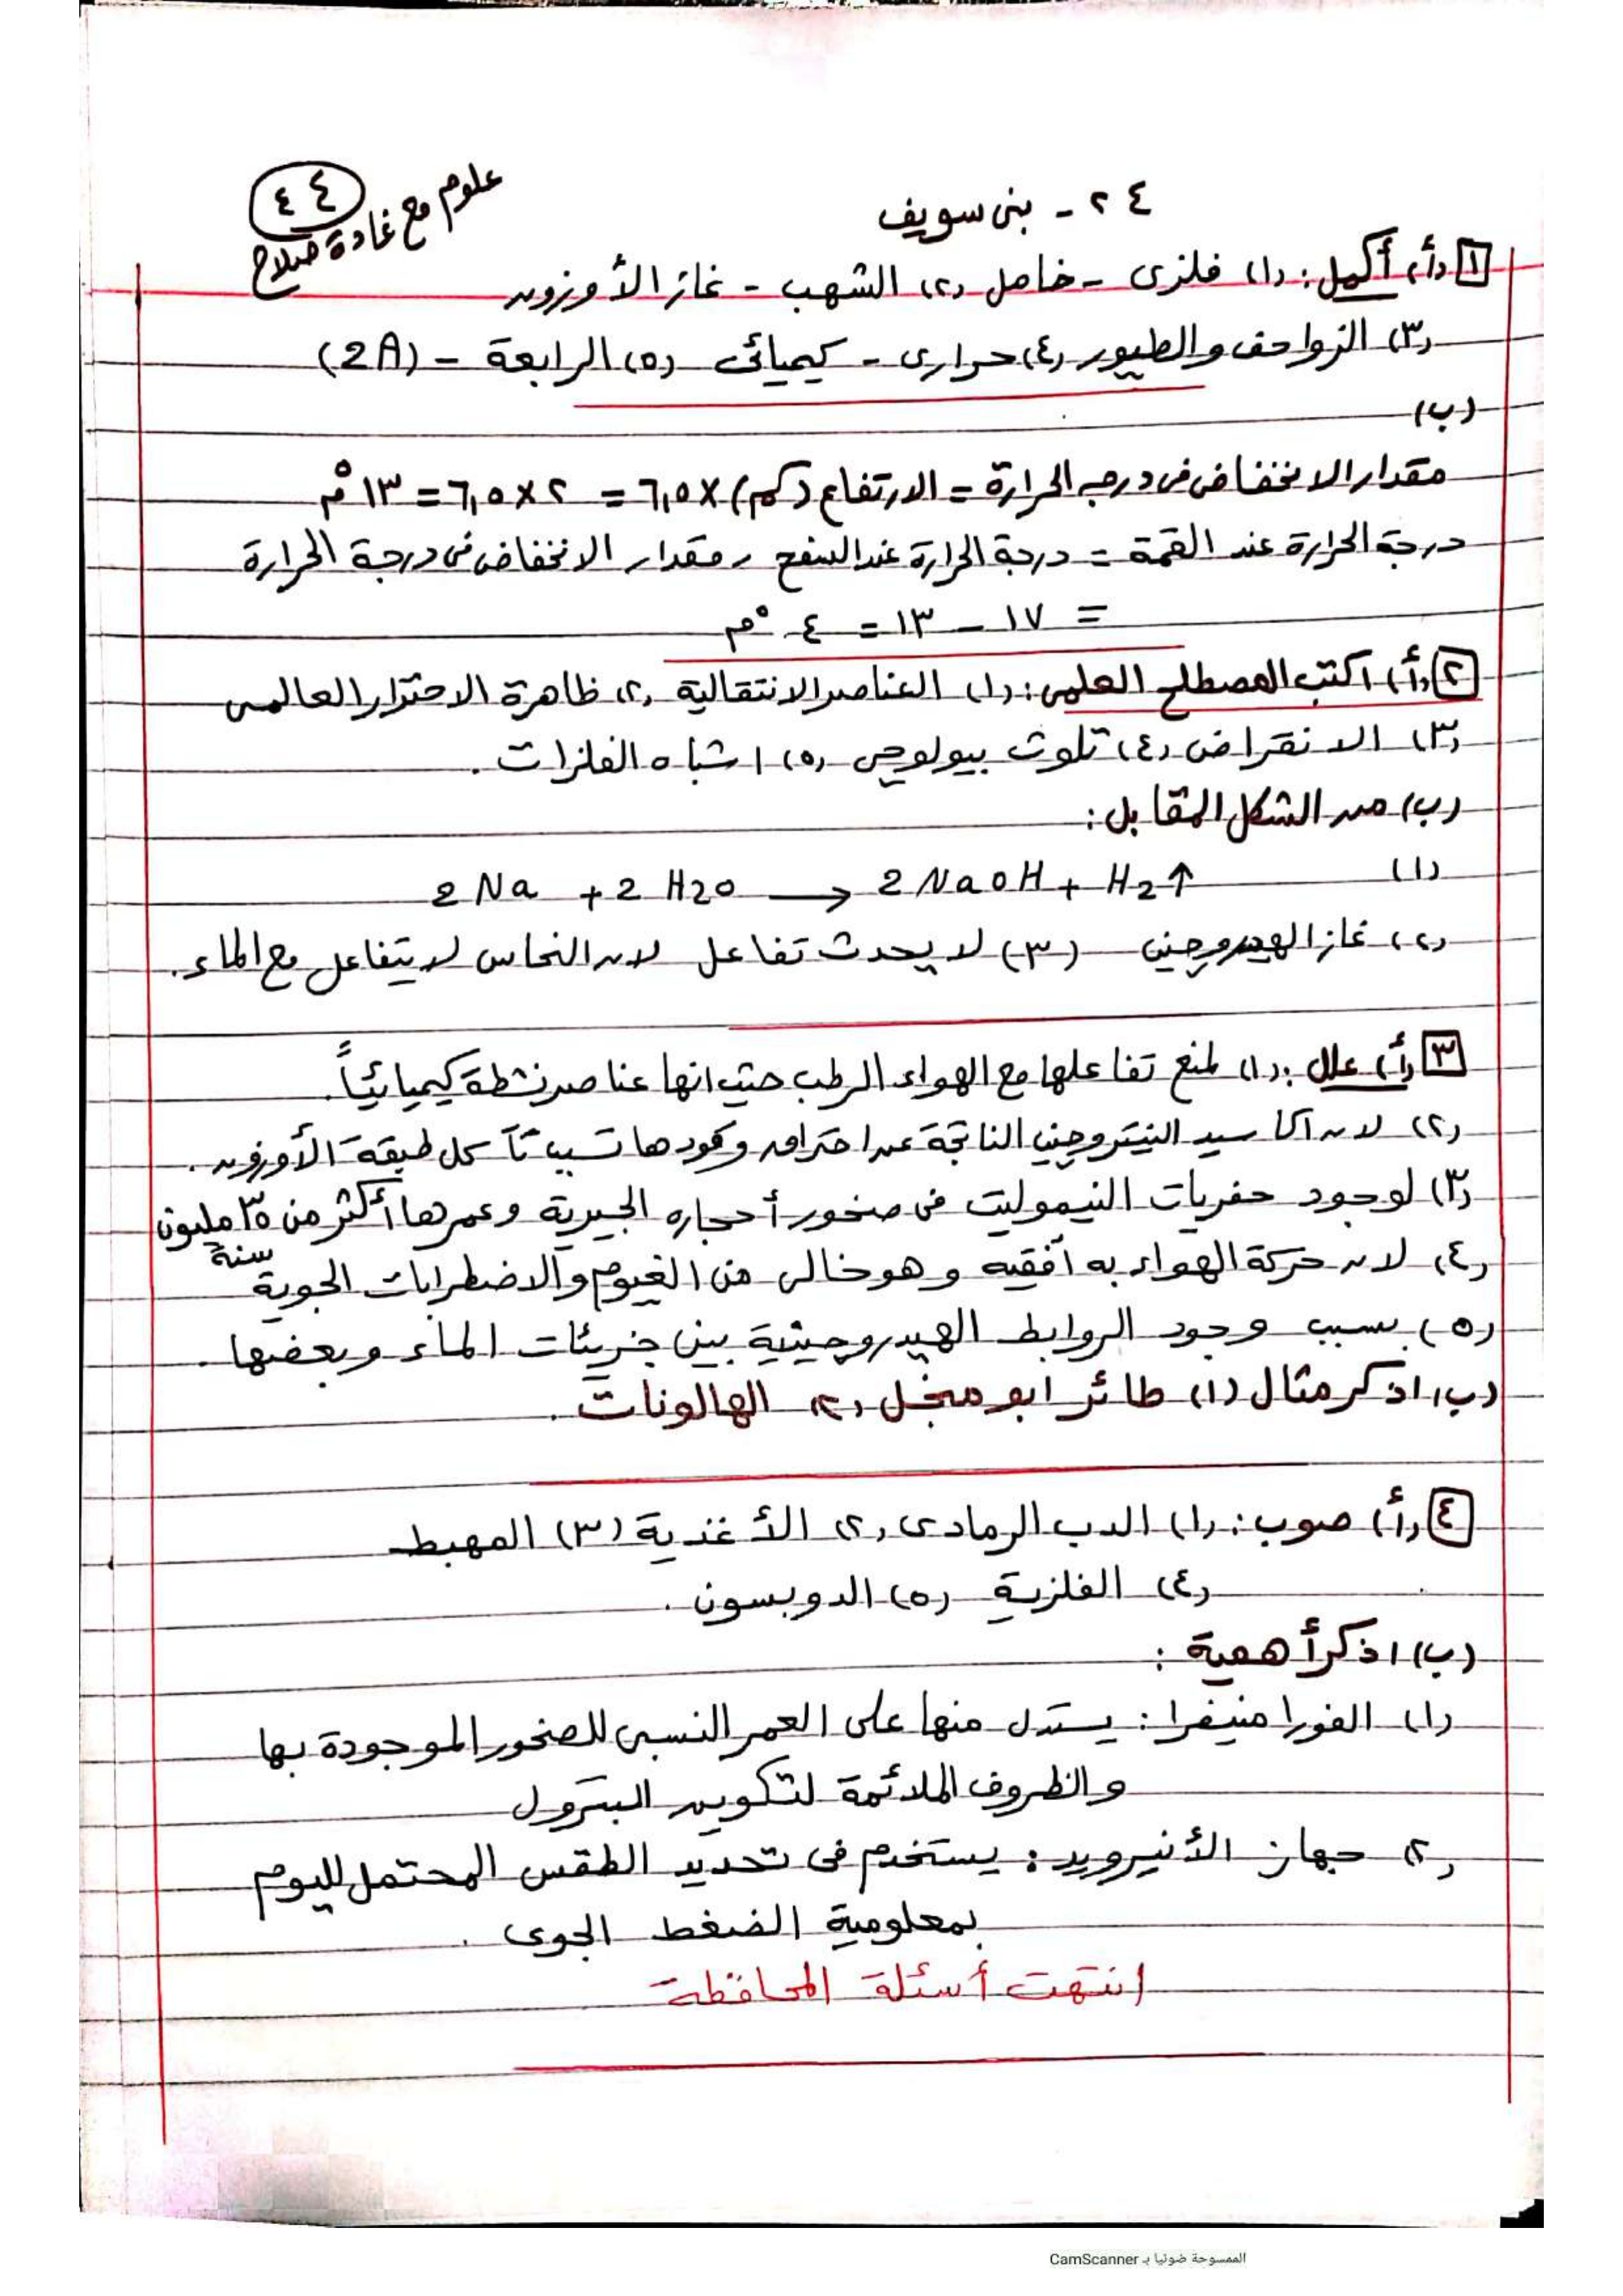 ٤٤
علوم مع غادة صلاح
٢٤ - بنى سويف
١ (أ) أكمل: (١) فلزى - خامل (٢) الشهب - غاز الأوزون
(٣) الزواحف والطيور (٤) حرارى - كيميائى (٥) الرابعة - (2A)
(ب)
مقدار الانخفاض فى درجة الحرارة = الارتفاع (كم) × ٦,٥ = ٢ × ٦,٥ = ١٣ °م
درجة الحرارة عند القمة = درجة الحرارة عند السفح - مقدار الانخفاض فى درجة الحرارة
= ١٧ - ١٣ = ٤ °م
٢ (أ) اكتب المصطلح العلمى: (١) العناصر الانتقالية (٢) ظاهرة الاحترار العالمى
(٣) الانقراض (٤) تلوث بيولوجى (٥) اشباه الفلزات .
(ب) من الشكل المقابل :
(١) 2 Na + 2 H2O → 2 NaOH + H2↑
(٢) غاز الهيدروجين (٣) لا يحدث تفاعل لان النحاس لا يتفاعل مع الماء .
٣ (أ) علل : (١) لمنع تفاعلها مع الهواء الرطب حيث انها عناصر نشطة كيميائياً .
(٢) لان اكاسيد النيتروجين الناتجة عن احتراق وقودها تسبب تآكل طبقة الأوزون .
(٣) لوجود حفريات النيموليت فى صخور أحجاره الجيرية وعمرها أكثر من ٣٥ مليون سنة
(٤) لان حركة الهواء به أفقيه وهو خالى من الغيوم والاضطرابات الجوية
(٥) بسبب وجود الروابط الهيدروجينية بين جزيئات الماء وبعضها .
(ب) اذكر مثال (١) طائر ابو منجل (٢) الهالونات .
٤ (أ) صوب : (١) الدب الرمادى (٢) الأغذية (٣) المهبط
(٤) الفلزية (٥) الدوبسون .
(ب) اذكر أهمية :
(١) الفورامنيفرا : يستدل منها على العمر النسبى للصخور الموجودة بها
والظروف الملائمة لتكوين البترول
(٢) جهاز الأنيرويد : يستخدم فى تحديد الطقس المحتمل لليوم
بمعلومية الضغط الجوى .
انتهت أسئلة المحافظة
الممسوحة ضوئيا بـ CamScanner